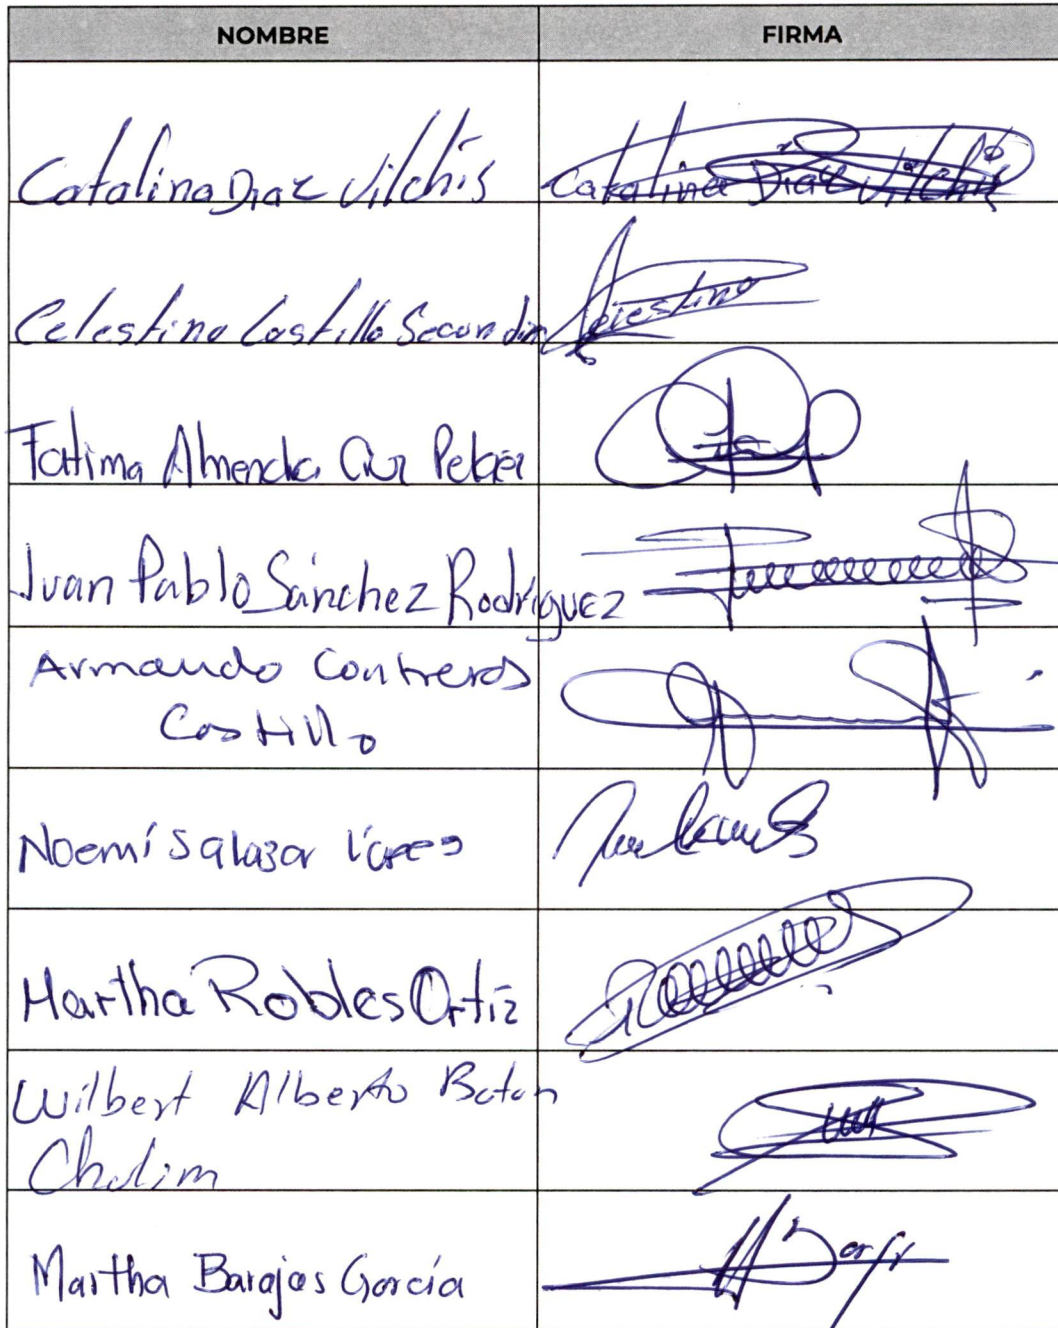 NOMBRE FIRMA
Catalina Diaz Vilchis Catalina Diaz Vilchis
Celestino Castillo Secundin Celestino
Fatima Almendra Cruz Pelaez
Juan Pablo Sánchez Rodriguez
Armando Contreras
Castillo
Noemí Salazar
Martha Robles Ortiz
Wilbert Alberto Batun
Chulim
Martha Barajas García